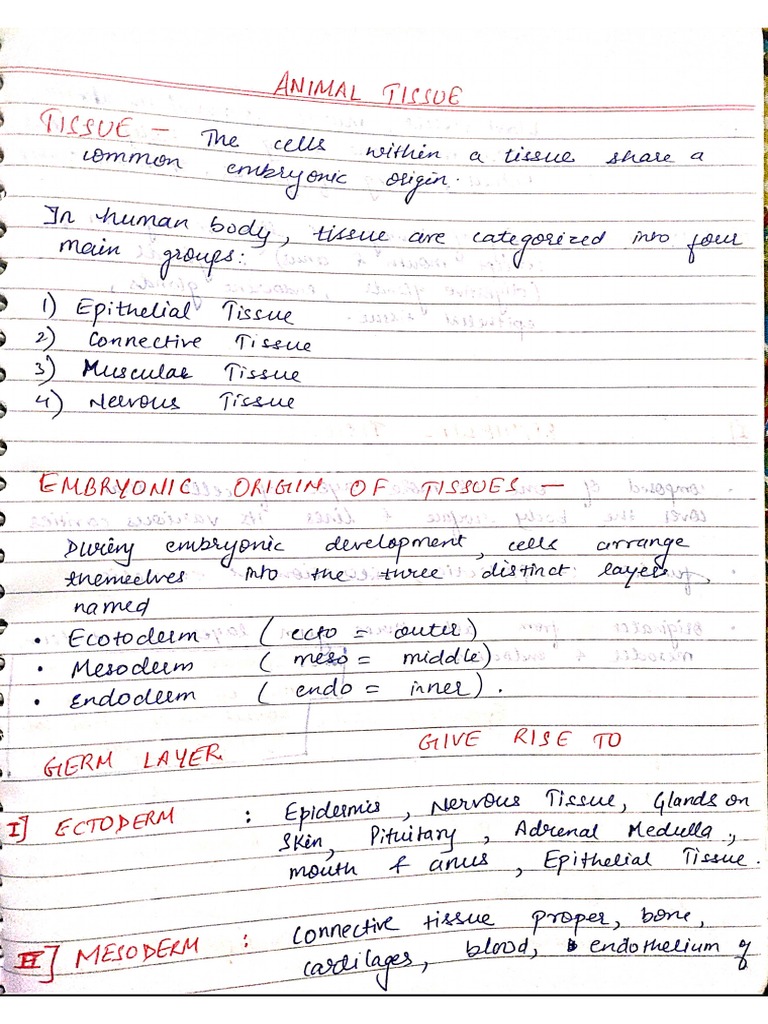 ANIMAL TISSUE
TISSUE - The cells within a tissue share a
common embryonic origin.
In human body, tissue are categorized into four
main groups:
1) Epithelial Tissue
2) Connective Tissue
3) Muscular Tissue
4) Nervous Tissue
EMBRYONIC ORIGIN OF TISSUES -
During embryonic development, cells arrange
themselves into the three distinct layers,
named
• Ecotoderm (ecto = outer)
• Mesoderm (meso = middle)
• Endoderm (endo = inner).
GERM LAYER GIVE RISE TO
I] ECTODERM : Epidermis, Nervous Tissue, Glands on
Skin, Pituitary, Adrenal Medulla,
mouth & anus, Epithelial Tissue.
II] MESODERM : Connective tissue proper, bone,
cardilages, blood, endothelium of